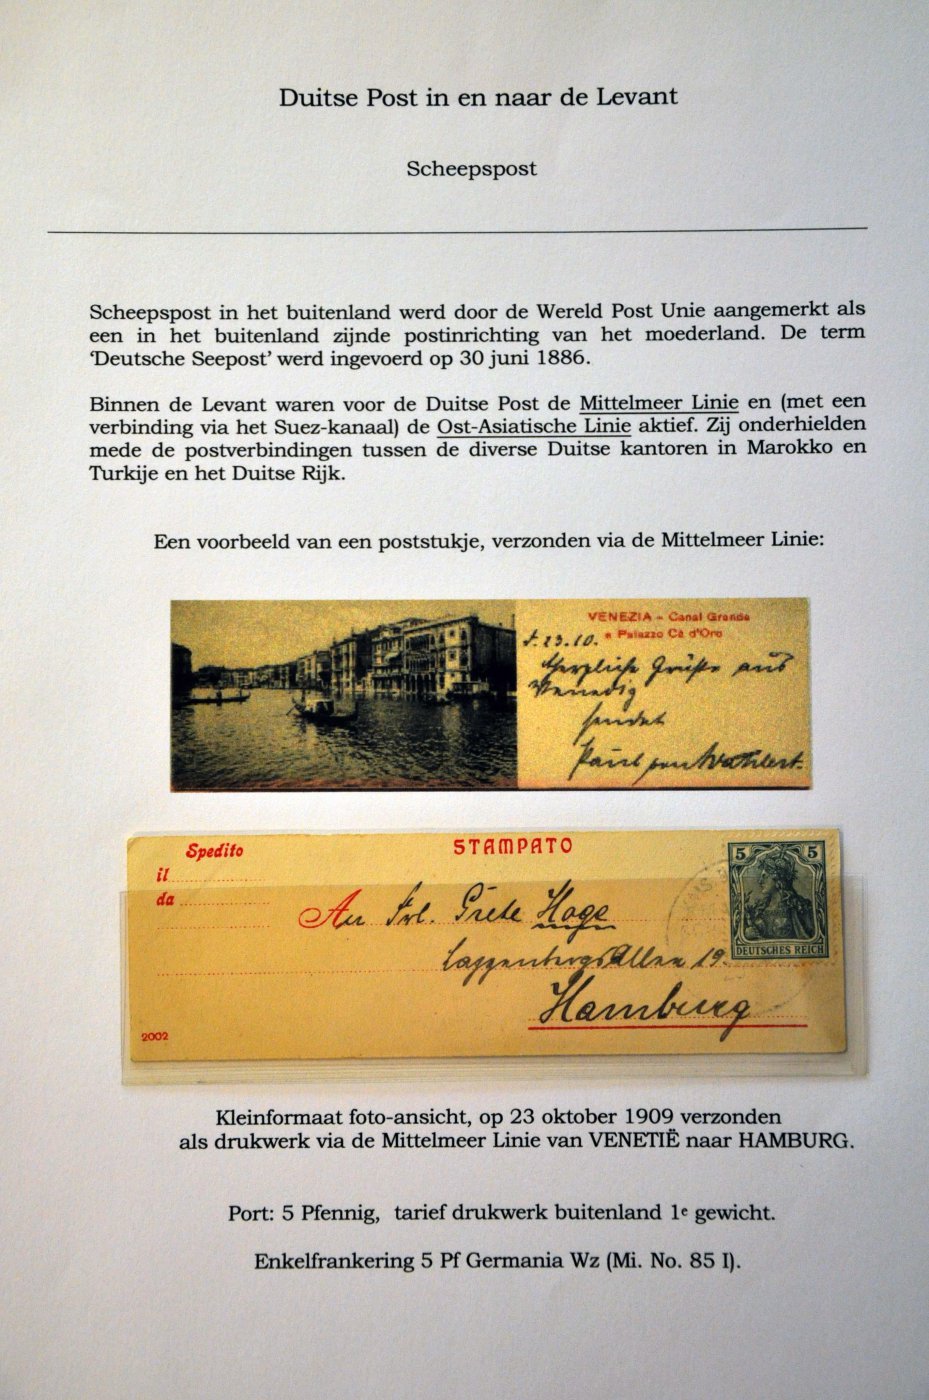 Duitse Post in en naar de Levant
Scheepspost
Scheepspost in het buitenland werd door de Wereld Post Unie aangemerkt als
een in het buitenland zijnde postinrichting van het moederland. De term
‘Deutsche Seepost’ werd ingevoerd op 30 juni 1886.
Binnen de Levant waren voor de Duitse Post de Mittelmeer Linie en (met een
verbinding via het Suez-kanaal) de Ost-Asiatische Linie aktief. Zij onderhielden
mede de postverbindingen tussen de diverse Duitse kantoren in Marokko en
Turkije en het Duitse Rijk.
Een voorbeeld van een poststukje, verzonden via de Mittelmeer Linie:
VENEZIA - Canal Grande
e Palazzo Cà d'Oro
23.10.
Herzliche Grüße aus
Venedig
sendet
Paul von
Spedito
STAMPATO
il
da
An Frl. Grete Hage
19.
Hamburg
2002
5 5
DEUTSCHES REICH
Kleinformaat foto-ansicht, op 23 oktober 1909 verzonden
als drukwerk via de Mittelmeer Linie van VENETIË naar HAMBURG.
Port: 5 Pfennig, tarief drukwerk buitenland 1e gewicht.
Enkelfrankering 5 Pf Germania Wz (Mi. No. 85 I).